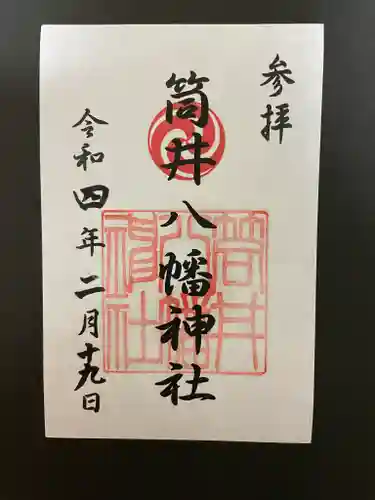 参拝
筒井八幡神社
令和四年二月十九日
筒井
八幡
神社